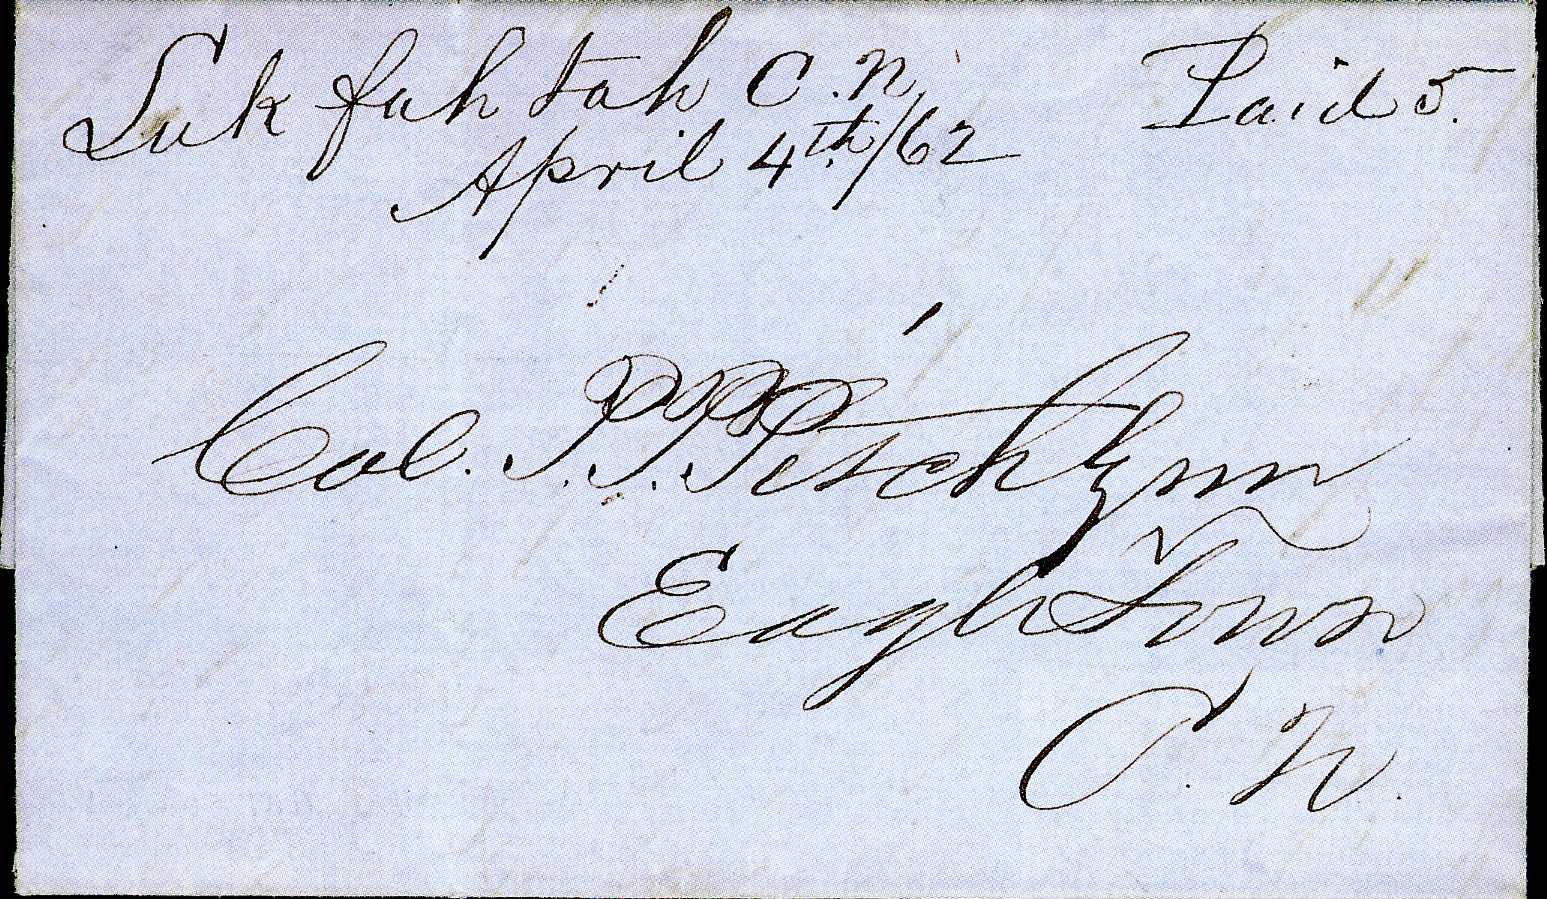 Luk fah tah C.N. Paid 5.
April 4th/62
Col. P.P. Pitchlynn
Eagle Town
C.N.